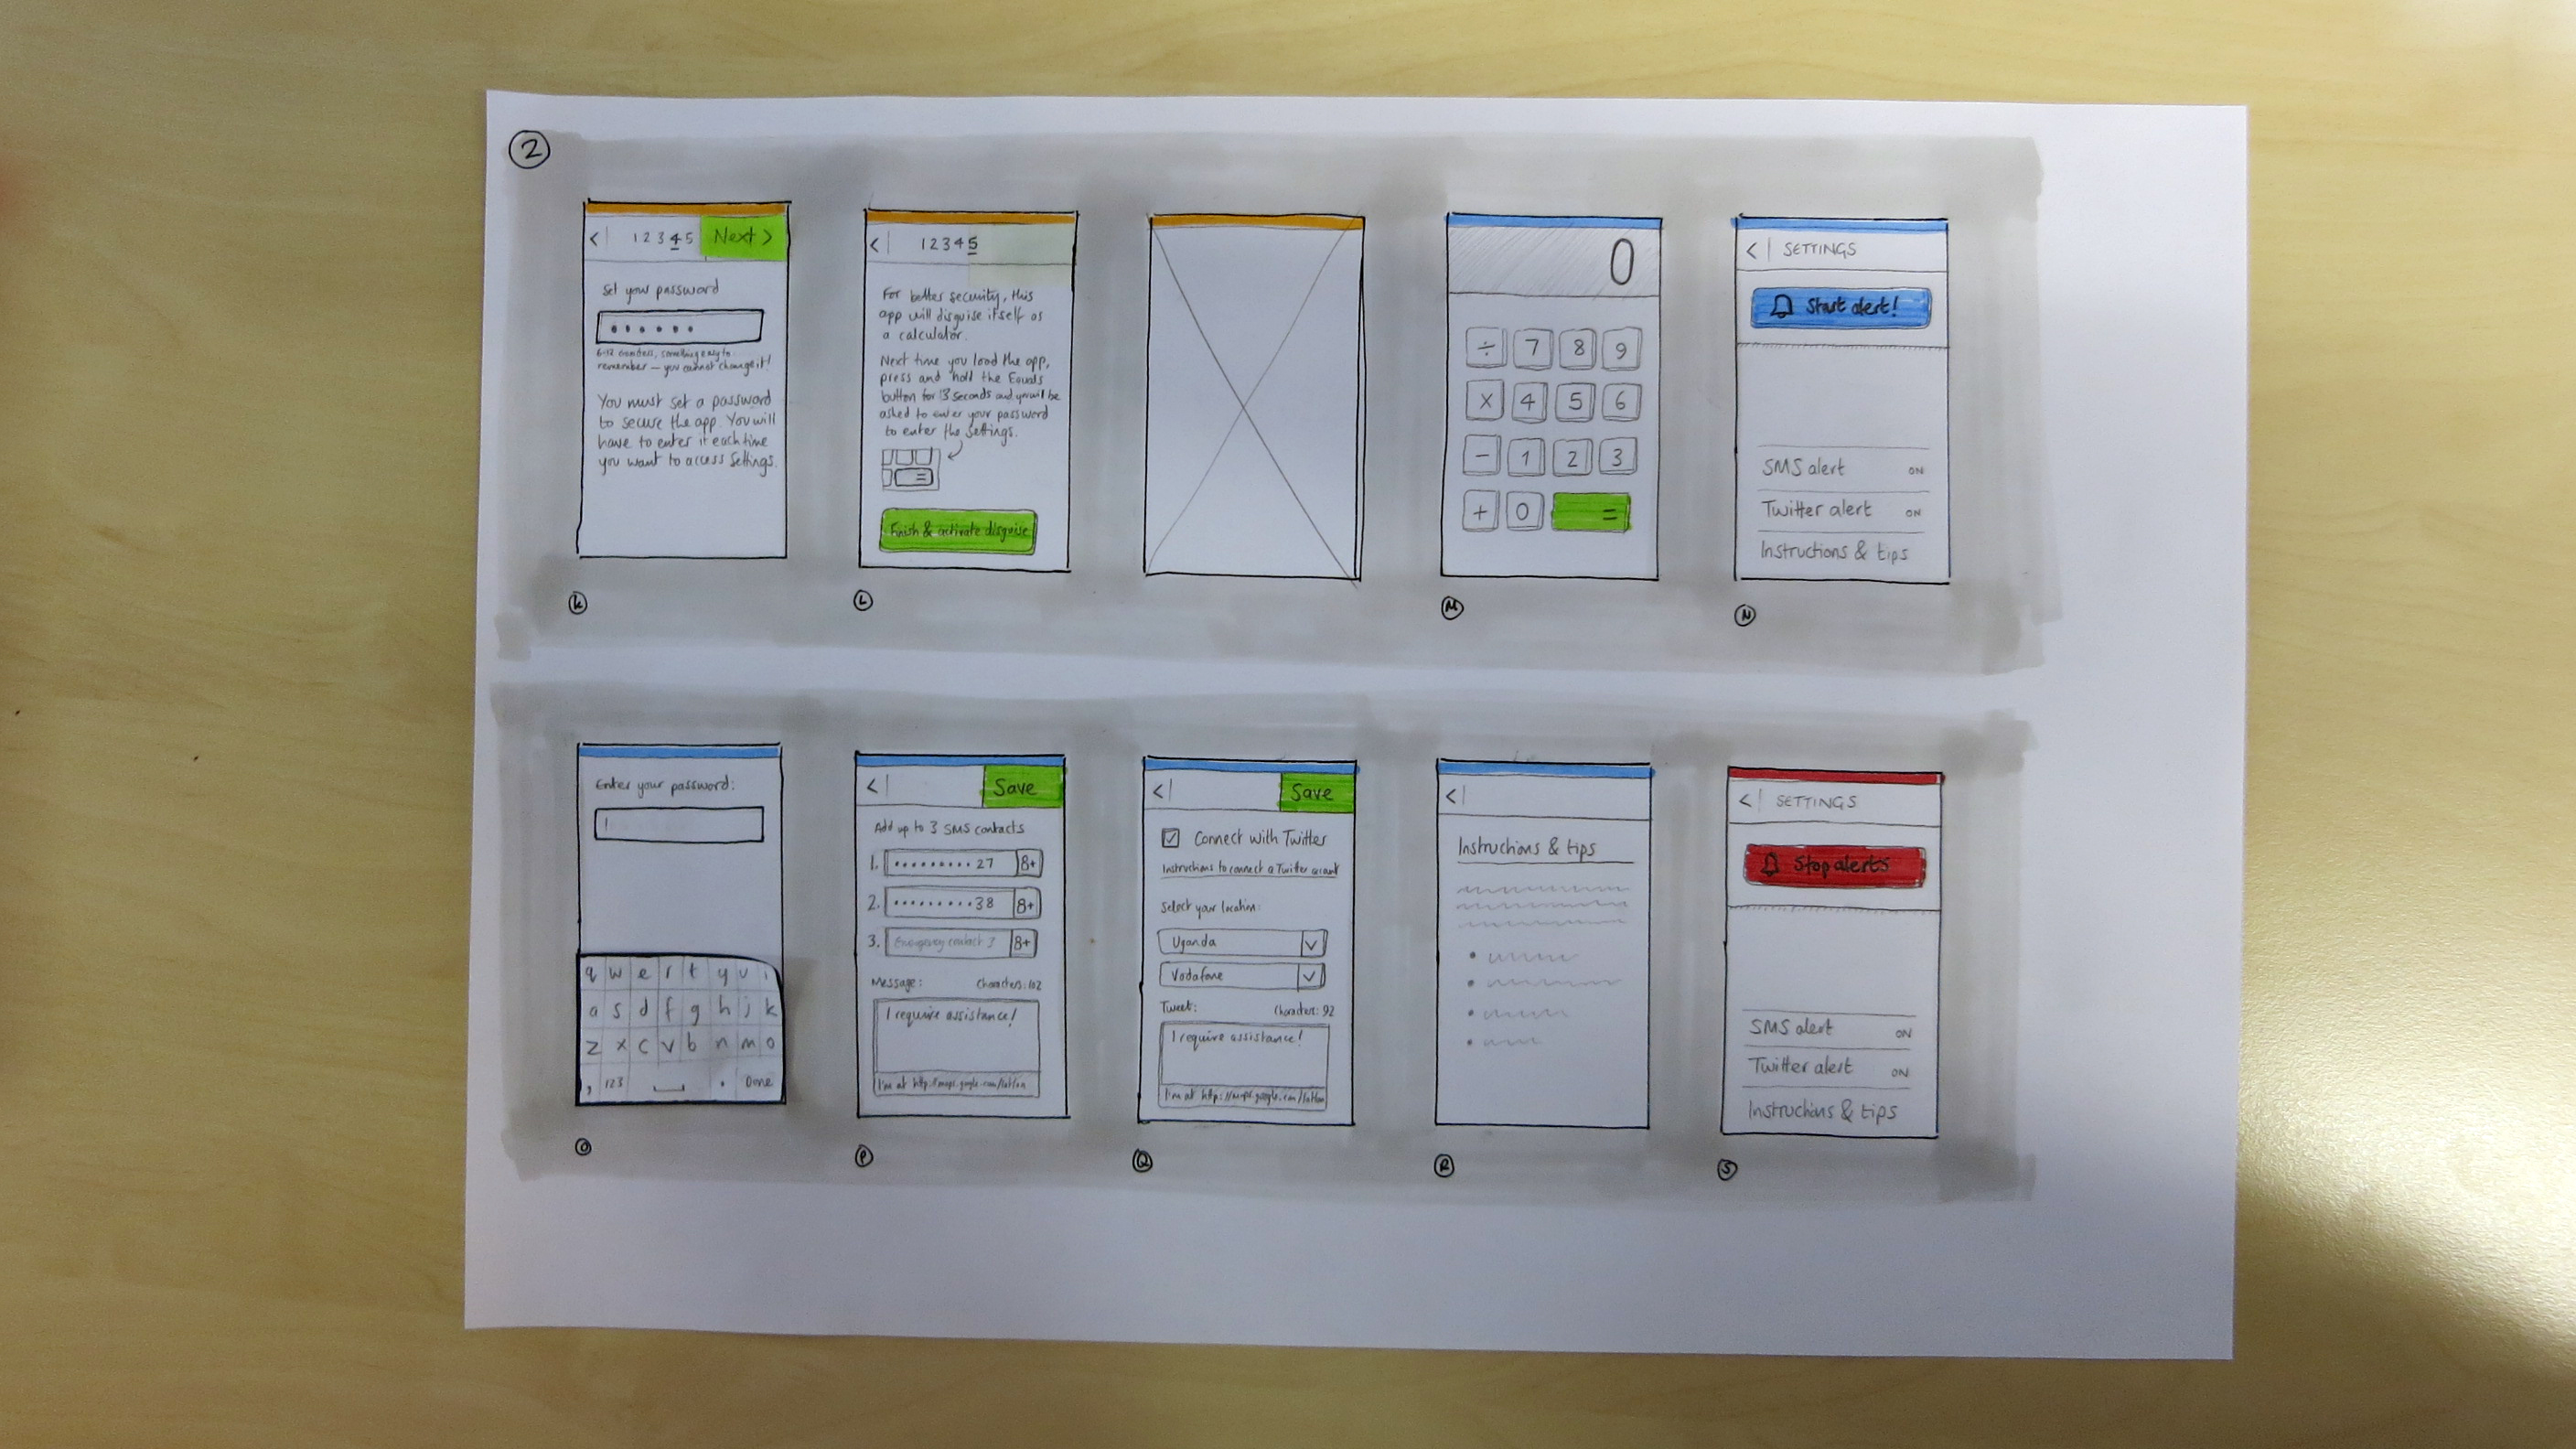 2
< 1 2 3 4 5 Next >
Set your password
6-12 characters, something easy to
remember — you cannot change it!
You must set a password
to secure the app. You will
have to enter it each time
you want to access Settings.
K
< 1 2 3 4 5
For better security, this
app will disguise itself as
a calculator.
Next time you load the app,
press and hold the Equals
button for 3 seconds and you will be
asked to enter your password
to enter the Settings.
=
Finish & activate disguise
L
0
÷ 7 8 9
X 4 5 6
- 1 2 3
+ 0 =
M
< SETTINGS
Start alert!
SMS alert ON
Twitter alert ON
Instructions & tips
N
Enter your password:
q w e r t y u i
a s d f g h j k
z x c v b n m o
, 123 . Done
O
< Save
Add up to 3 SMS contacts
1. ......... 27 8+
2. ......... 38 8+
3. Emergency contact 3 8+
Message: Characters: 102
I require assistance!
I'm at http://maps.google.com/
P
< Save
Connect with Twitter
Instructions to connect a Twitter account
Select your location:
Uganda
Vodafone
Tweet: Characters: 92
I require assistance!
I'm at http://maps.google.com/
Q
<
Instructions & tips
R
< SETTINGS
Stop alerts
SMS alert ON
Twitter alert ON
Instructions & tips
S